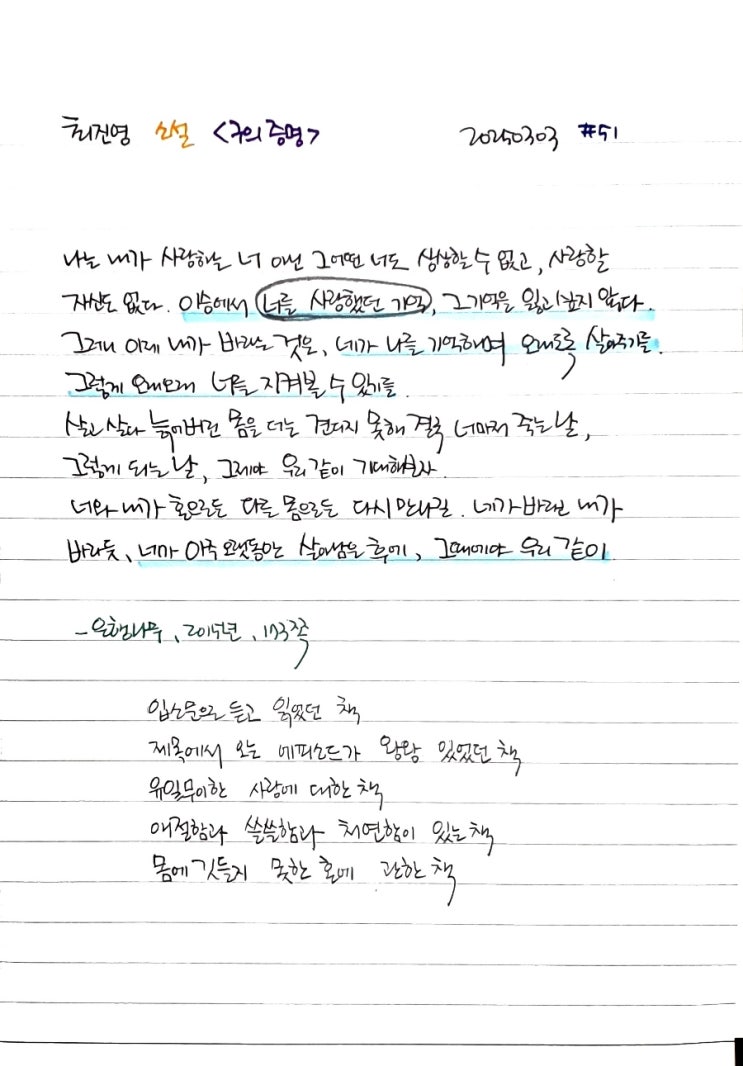 최진영 소설 <구의 증명> 20250303 #51
나는 내가 사랑하는 너 아닌 그 어떤 너도 상상할 수 없고, 사랑할
자신도 없다. 이승에서 너를 사랑했던 기억, 그 기억을 잃고 싶지 않다.
그러니 이제 내가 바라는 것은, 네가 나를 기억하며 오래도록 살아주기를.
그렇게 오래오래 너를 지켜볼 수 있기를.
살고 살다 늙어버린 몸을 더는 견디지 못해 결국 너마저 죽는 날,
그렇게 되는 날, 그제야 우리 같이 기대해보자.
너와 내가 혼으로든 다른 몸으로든 다시 만나길. 네가 바라고 내가
바라듯, 네가 아주 오랫동안 살아남은 후에, 그때에야 우리 같이.
- 은행나무, 2015년, 173쪽
입소문으로 듣고 읽었던 책
제목에서 오는 에피소드가 왕왕 있었던 책
유일무이한 사랑에 대한 책
애절함과 쓸쓸함과 처연함이 있는 책
몸에 깃들지 못한 혼에 관한 책